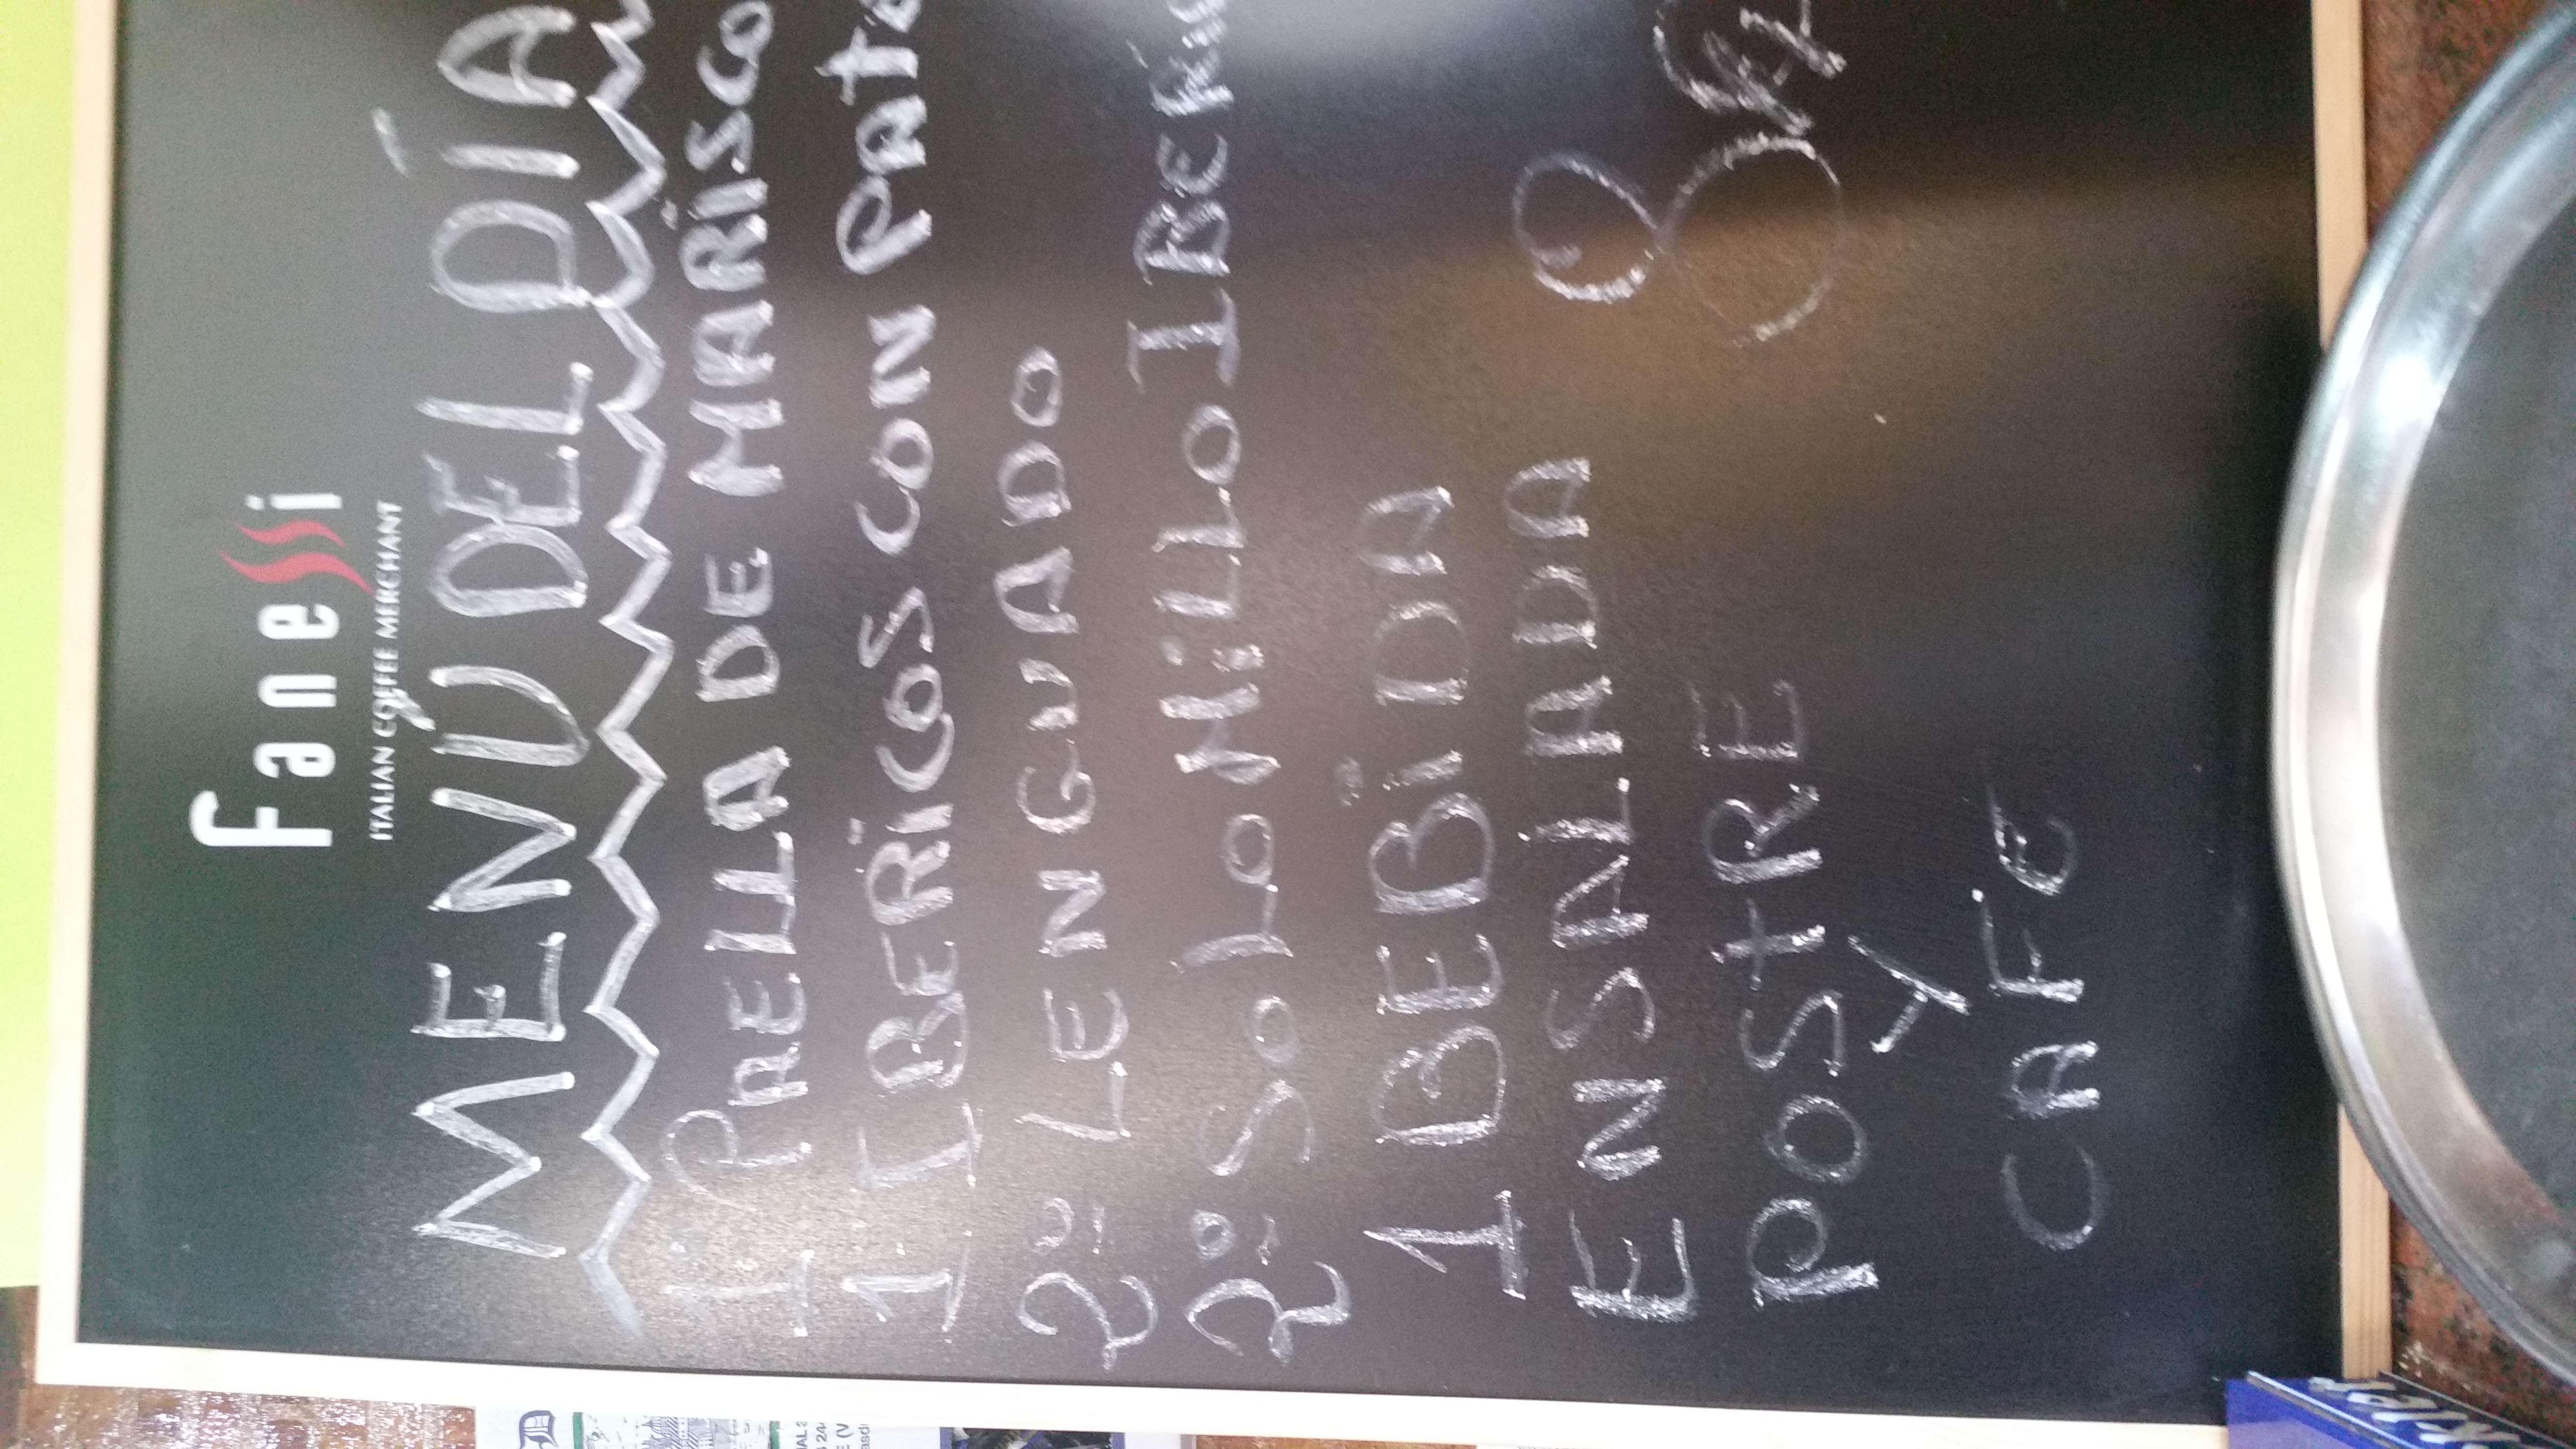 Fanessi
ITALIAN COFFEE MERCHANT
MENÚ DEL DÍA
1º PAELLA DE MARISCO
1º IBERICOS CON PATE
2º LENGUADO
2º SOLOMILLO IBERIC
1 BEBIDA
ENSALADA
POSTRE
Y
CAFE
8